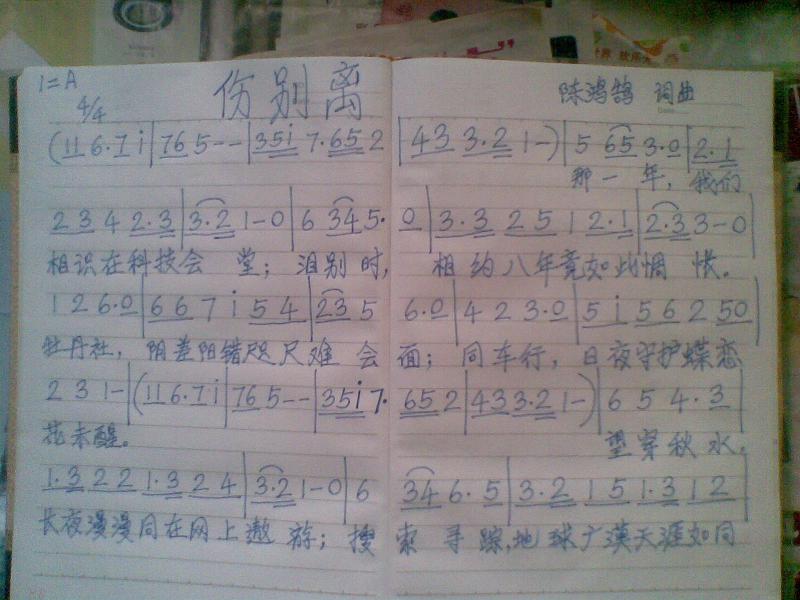 1=A
4/4
伤别离
陈鸿鹄 词曲
(11 6·7 i|76 5--|35i 7·65 2|43 3·2 1-)|5 65 3·0|2·1
那一年,我们
2 3 4 2·3|3·2 1-0|6 34 5·0|3·3 2 5 1 2·1|2·3 3-0|
相识在科技会堂;泪别时,相约八年竟如此惆怅。
1 2 6·0|6 6 7 i 5 4|23 5 6·0|4 2 3·0|5 i 5 6 2 50|
牡丹社,阴差阳错咫尺难会面;同车行,日夜守护蝶恋
2 3 1-|(11 6·7 i|76 5--|35i 7·65 2|43 3·2 1-)|6 5 4·3|
花未醒。望穿秋水,
1·3 2 2 1·3 2 4|3·2 1-0|6 34 6·5|3·2 1 5 1·3 1 2|
长夜漫漫同在网上遨游;搜索寻踪,地球广漠天涯如同